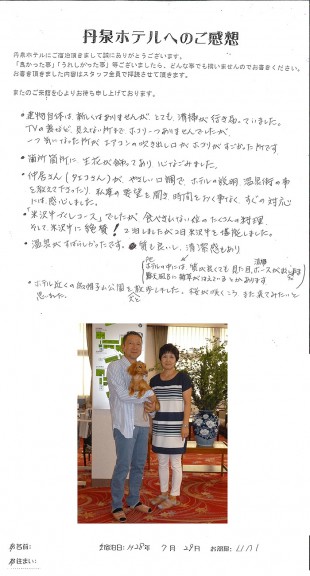 丹泉ホテルへのご感想
丹泉ホテルにご宿泊頂きまして誠にありがとうございます。
「良かった事」「うれしかった事」等ございましたら、どんな事でも構いませんのでお書きください。
お書き頂きました内容はスタッフ全員で拝読させて頂きます。
またのご来館を心よりお待ち申し上げております。
・建物自体は、新しくはありませんが、とても、清掃が行き届いていました。
TVの裏など、見えない所まで、ホコリ一つありませんでしたが、
一つ気になった所が エアコンの吹き出し口が ホコリがすごかった所です
・箇所箇所に 生花が飾ってあり 心なごみました。
・仲居さん(タエコさん)が、やさしい口調で、ホテルの説明 温泉街の事
を教えて下さったり、私達の要望を聞き 時間をおく事なく、すぐの対応
には感心しました。
・「米沢牛づくしコース」でしたが 食べきれない位のたくさんの料理
そして米沢牛に絶賛! 2泊しましたが2日米沢牛を堪能しました。
・温泉がすばらしかったです。 質も良いし、清潔感もあり
他 ホテルの中には 質が良くても 見た目
露天風呂に 雑草が はえている とかあります
・ホテル近くの烏帽子山公園を散歩しました。桜が咲くころ、また来てみたいと
思いました。
お名前: ご宿泊日: H28年 7月 28日 お部屋:
お住まい: